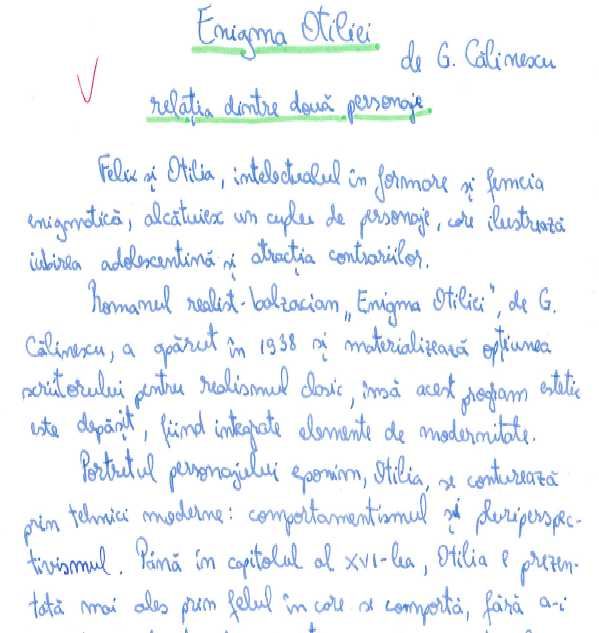 Enigma Otiliei
de G. Călinescu
relația dintre două personaje
Felix și Otilia, intelectualul în formare și femeia
enigmatică, alcătuiesc un cuplu de personaje, care ilustrează
iubirea adolescentină și atracția contrariilor.
Romanul realist-balzacian „Enigma Otiliei", de G.
Călinescu, a apărut în 1938 și materializează opțiunea
scriitorului pentru realismul clasic, însă acest program estetic
este depășit, fiind integrate elemente de modernitate.
Portretul personajului eponim, Otilia, se conturează
prin tehnici moderne: comportamentismul și pluriperspec-
tivismul. Până în capitolul al XVI-lea, Otilia e prezen-
tată mai ales prin felul în care se comportă, fără a-i